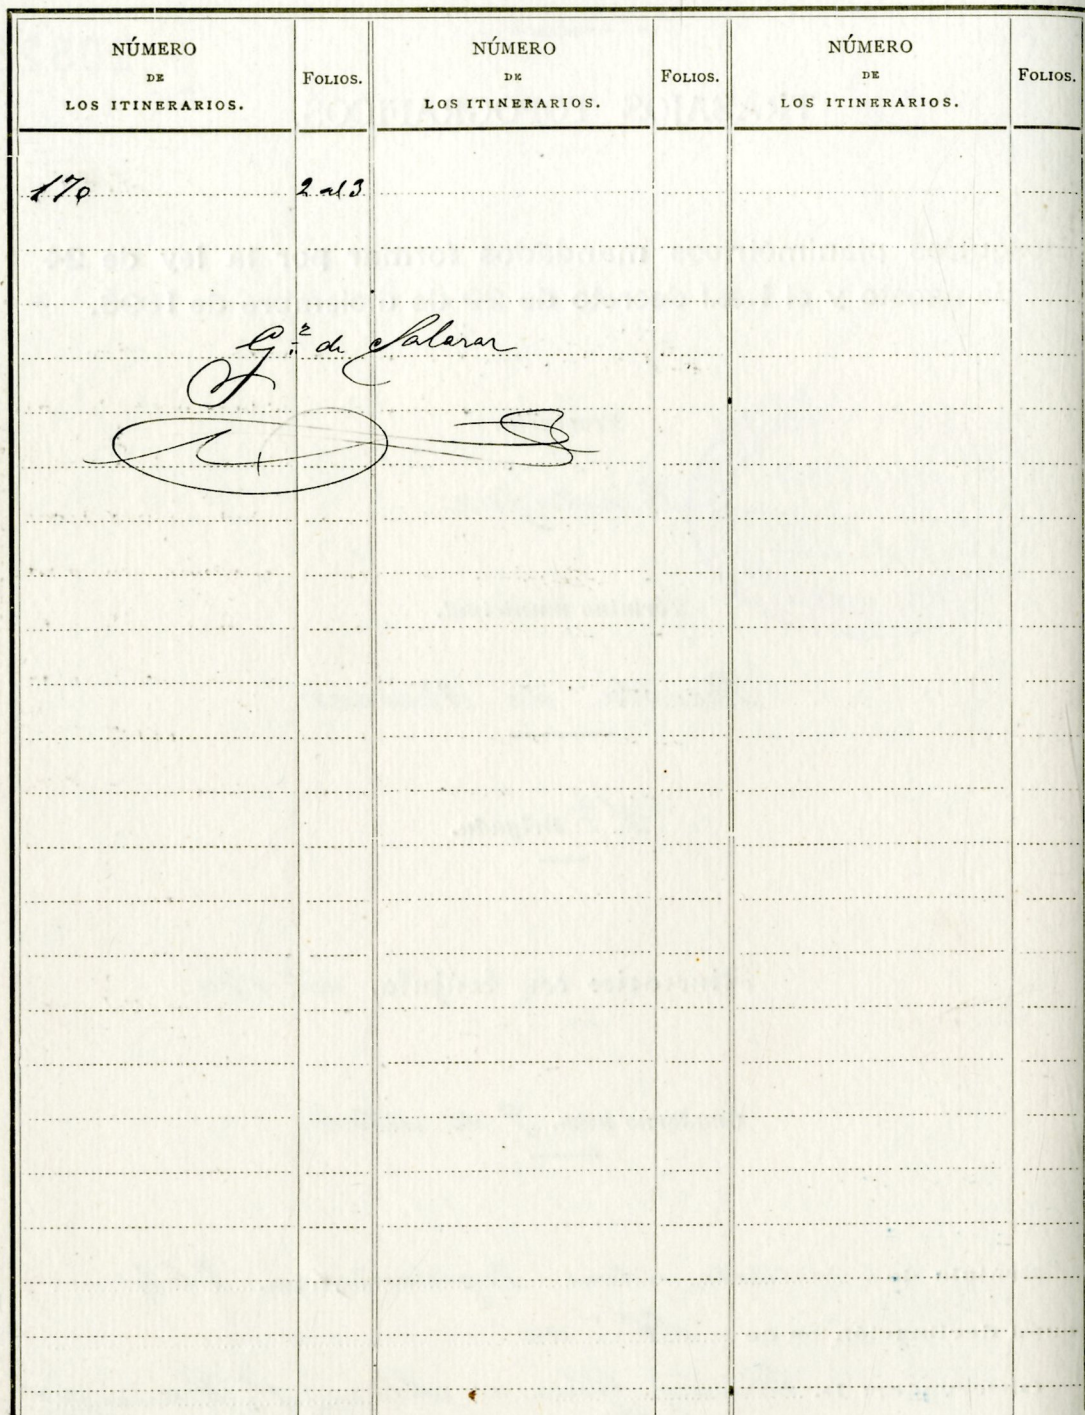 NÚMERO
DE
LOS ITINERARIOS.
FOLIOS.
NÚMERO
DE
LOS ITINERARIOS.
FOLIOS.
NÚMERO
DE
LOS ITINERARIOS.
FOLIOS.
170 2 al 3
de Salazar